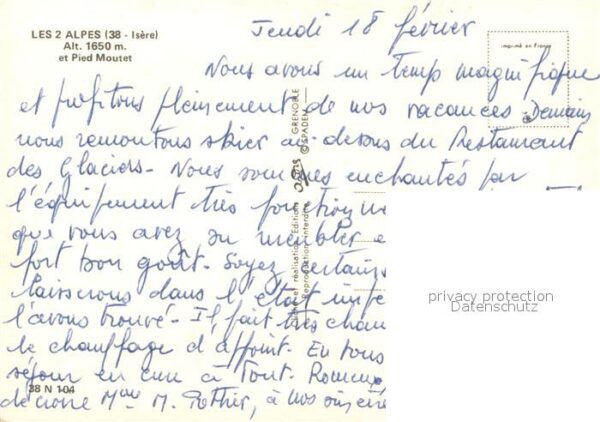 LES 2 ALPES (38 - Isère)
Alt. 1650 m.
et Pied Moutet
Jeudi 18 février
imprimé en France
Nous avons un temps magnifique
et profitons pleinement de nos vacances - Demain
nous remontons skier au-dessus du Restaurant
des Glaciers - Nous sommes enchantés par
l'équipement très fonctionne
que vous avez su meubler e
fort bon goût. Soyez certains
laisserons dans l'état
l'avons trouvé - Il fait très chau
le chauffage d'appoint. En
séjour en
de croire Mme M. à nos sincè
38 N 104
GRENOBLE
©SPADEM
réalisation Editions
Reproduction interdite
privacy protection
Datenschutz